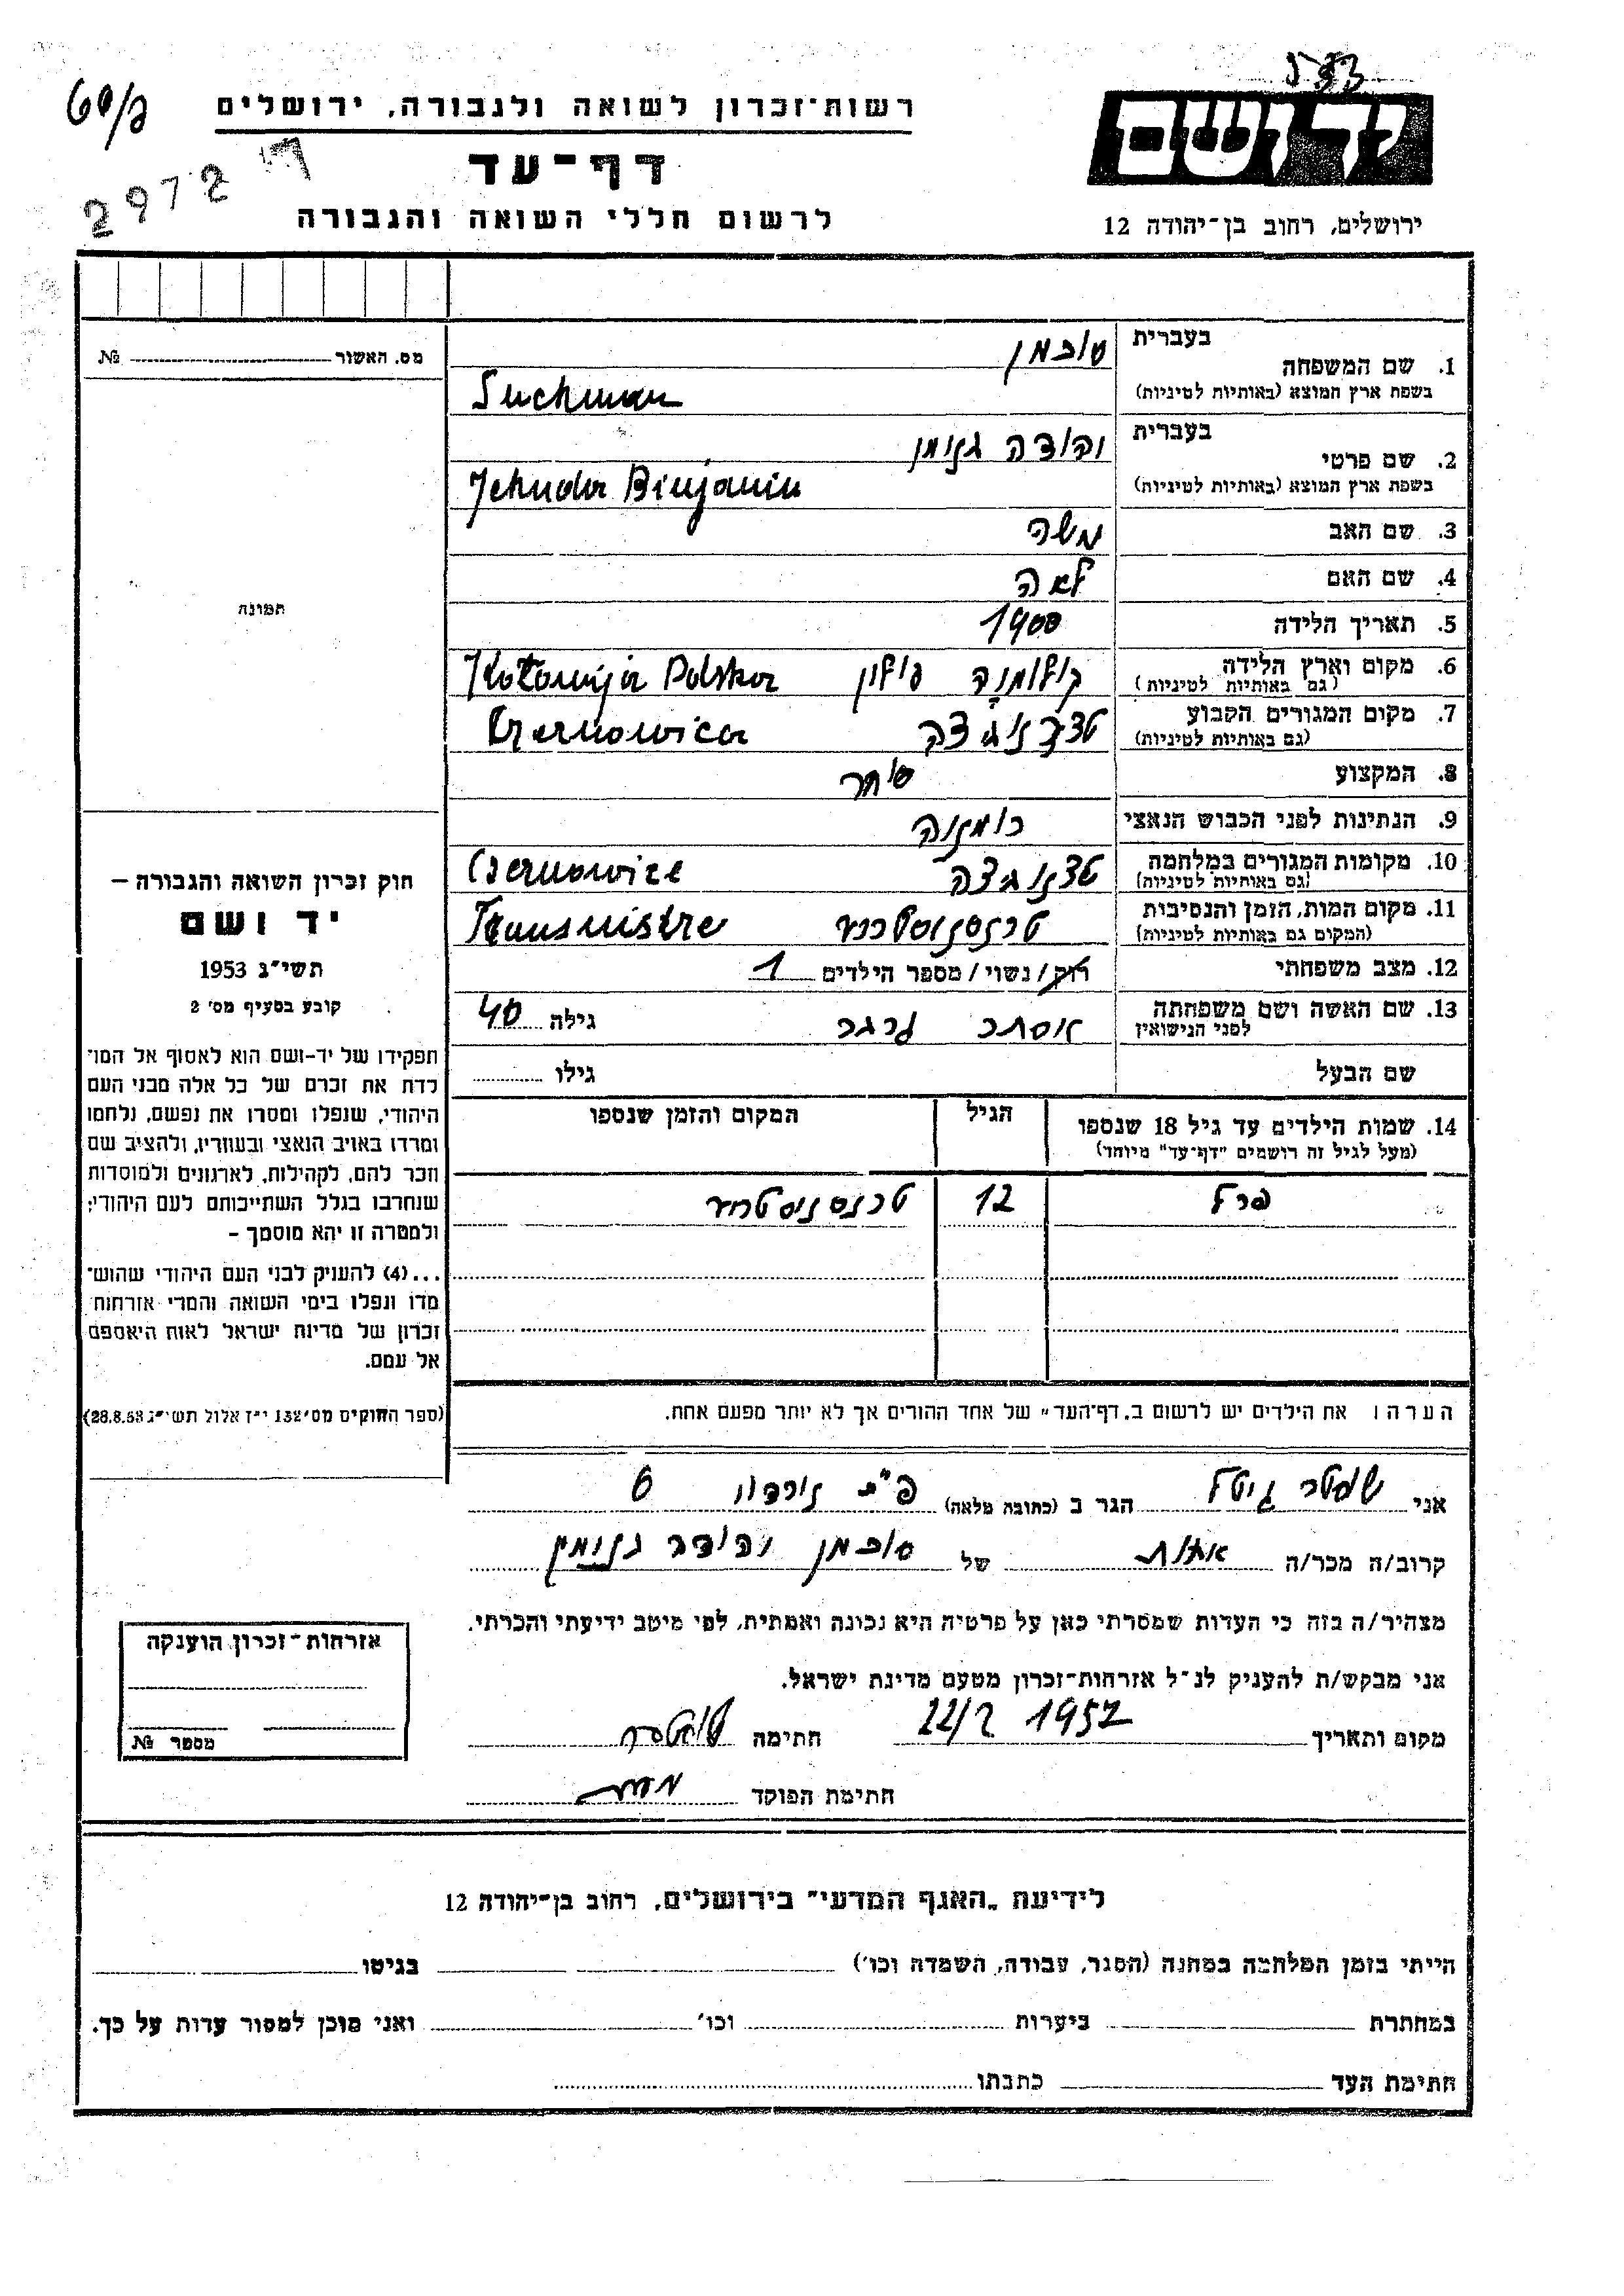 רשות־זכרון לשואה ולגבורה, ירושלים
דף־עד
לרשום חללי השואה והגבורה
2972
יד ושם
ירושלים, רחוב בן־יהודה 12
מס. האשור № 
תמונה
חוק זכרון השואה והגבורה –
יד ושם
תשי״ג 1953
קובע בסעיף מס׳ 2
תפקידו של יד-ושם הוא לאסוף אל המו־
לדת את זכרם של כל אלה מבני העם
היהודי, שנפלו ומסרו את נפשם, נלחמו
ומרדו באויב הנאצי ובעוזריו, ולהציב שם
וזכר להם, לקהילות, לארגונים ולמוסדות
שנחרבו בגלל השתייכותם לעם היהודי;
ולמטרה זו יהא מוסמך –
...(4) להעניק לבני העם היהודי שהוש־
מדו ונפלו בימי השואה והמרי אזרחות
זכרון של מדינת ישראל לאות היאספם
אל עמם.
(ספר החוקים מס׳ 132 י״ז אלול תשי״ג 28.8.53)
בעברית סוכמן
1. שם המשפחה
בשפת ארץ המוצא (באותיות לטיניות) Suchman
בעברית יהודה בנימין
2. שם פרטי
בשפת ארץ המוצא (באותיות לטיניות) Jehuda Binjamin
3. שם האב משה
4. שם האם לאה
5. תאריך הלידה 1900
6. מקום וארץ הלידה קולומיה פולין Kołomija Polska
(גם באותיות לטיניות)
7. מקום המגורים הקבוע Czernowica
(גם באותיות לטיניות)
8. המקצוע סוחר
9. הנתינות לפני הכבוש הנאצי רומניה
10. מקומות המגורים במלחמה Czernowice
(גם באותיות לטיניות)
11. מקום המות, הזמן והנסיבות טרנסניסטריה Transnistre
(המקום גם באותיות לטיניות)
12. מצב משפחתי רוק/נשוי/מספר הילדים 1
13. שם האשה ושם משפחתה אסתר גילה 40
לפני הנישואין
שם הבעל גילו
14. שמות הילדים עד גיל 18 שנספו הגיל המקום והזמן שנספו
(מעל לגיל זה רושמים "דף־עד" מיוחד)
פרל 12 טרנסניסטריה
הערה: את הילדים יש לרשום ב„דף־העד״ של אחד ההורים אך לא יותר מפעם אחת.
אני גיטל הגר ב (כתובה מלאה) פ״ת נורדוי 6
קרוב/ה מכר/ה אחות של סוכמן יהודה בנימין
מצהיר/ה בזה כי העדות שמסרתי כאן על פרטיה היא נכונה ואמתית, לפי מיטב ידיעתי והכרתי.
אני מבקש/ת להעניק לנ״ל אזרחות-זכרון מטעם מדינת ישראל.
מקום ותאריך 22/2 1957 חתימה
חתימת הפוקד
אזרחות-זכרון הוענקה
מספר №
לידיעת „האגף המדעי״ בירושלים, רחוב בן־יהודה 12
הייתי בזמן המלחמה במחנה (הסגר, עבודה, השמדה וכו׳) בגיטו
במחתרת ביערות וכו׳ ואני מוכן למסור עדות על כך.
חתימת העד כתבתו